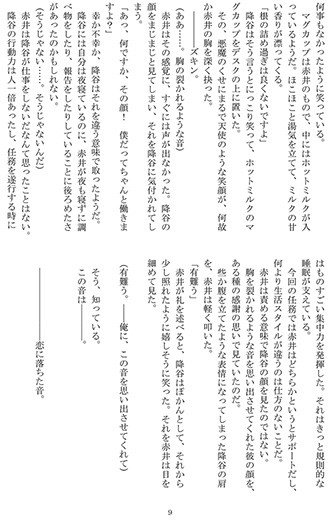 何事もなかったように笑っている。
　マグカップは赤井のもので、中にはホットミルクが入
っているようだ。ほこほこと湯気を立てて、ミルクの甘
い香りが漂ってくる。
「根の詰め過ぎは良くないですよ」
　降谷はそう言うとにっこり笑って、ホットミルクのマ
グカップをデスクの上に置いた。
　その、悪魔のくせにまるで天使のような笑顔が、何故
か赤井の胸を深く抉った。
　───ズキン。
（ああ……。胸の裂かれるような音）
　赤井はその感覚に、すぐには声が出なかった。降谷の
顔をまじまじと見てしまい、それを降谷に気付かれてし
まう。
「あっ、何ですか、その顔！　僕だってちゃんと働きま
すよ？」
　幸か不幸か、降谷はそれを違う意味で取ったようだ。
　降谷には自分は夜寝ているのに、赤井が夜も寝ずに調
べ物をしたり、報告をしたりしていることに後ろめたさ
があったのかもしれない。
（そうじゃない……。そうじゃないんだ）
　赤井は降谷が仕事をしないだなんて思ったことはない。
　降谷の行動力は人一倍あったし、任務を遂行する時に
はものすごい集中力を発揮した。それはきっと規則的な
睡眠が支えている。
　今回の任務では赤井はどちらかというとサポートだし、
何より生活スタイルが違うのは仕方のないことだ。
　赤井は責める意味で降谷の顔を見たのではない。
　胸を裂かれるような音を思い出させてくれた彼の顔を、
ある種の感謝の思いで見ていたのだ。
　些か腹を立てたような表情になってしまった降谷の肩
を、赤井は軽く叩いた。
「有難う」
　赤井が礼を述べると、降谷はぽかんとして、それから
少し照れたように嬉しそうに笑った。それを赤井は目を
細めて見た。
（有難う。───俺に、この音を思い出させてくれて）
　そう、知っている。
　この音は───。
　───────恋に落ちた音。
9